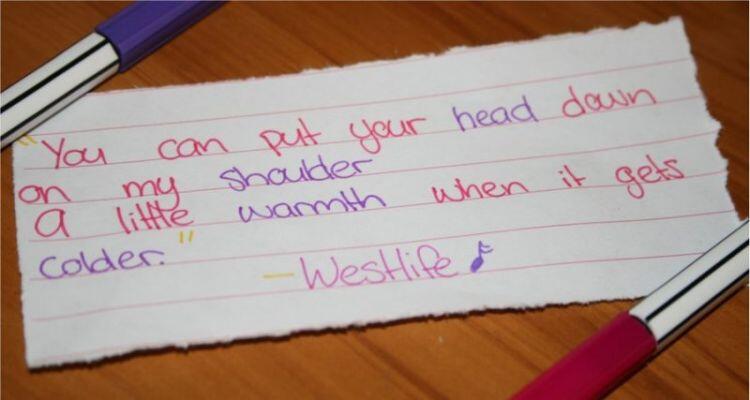 "You can put your head down
on my shoulder
A little warmth when it gets
colder."
—Westlife